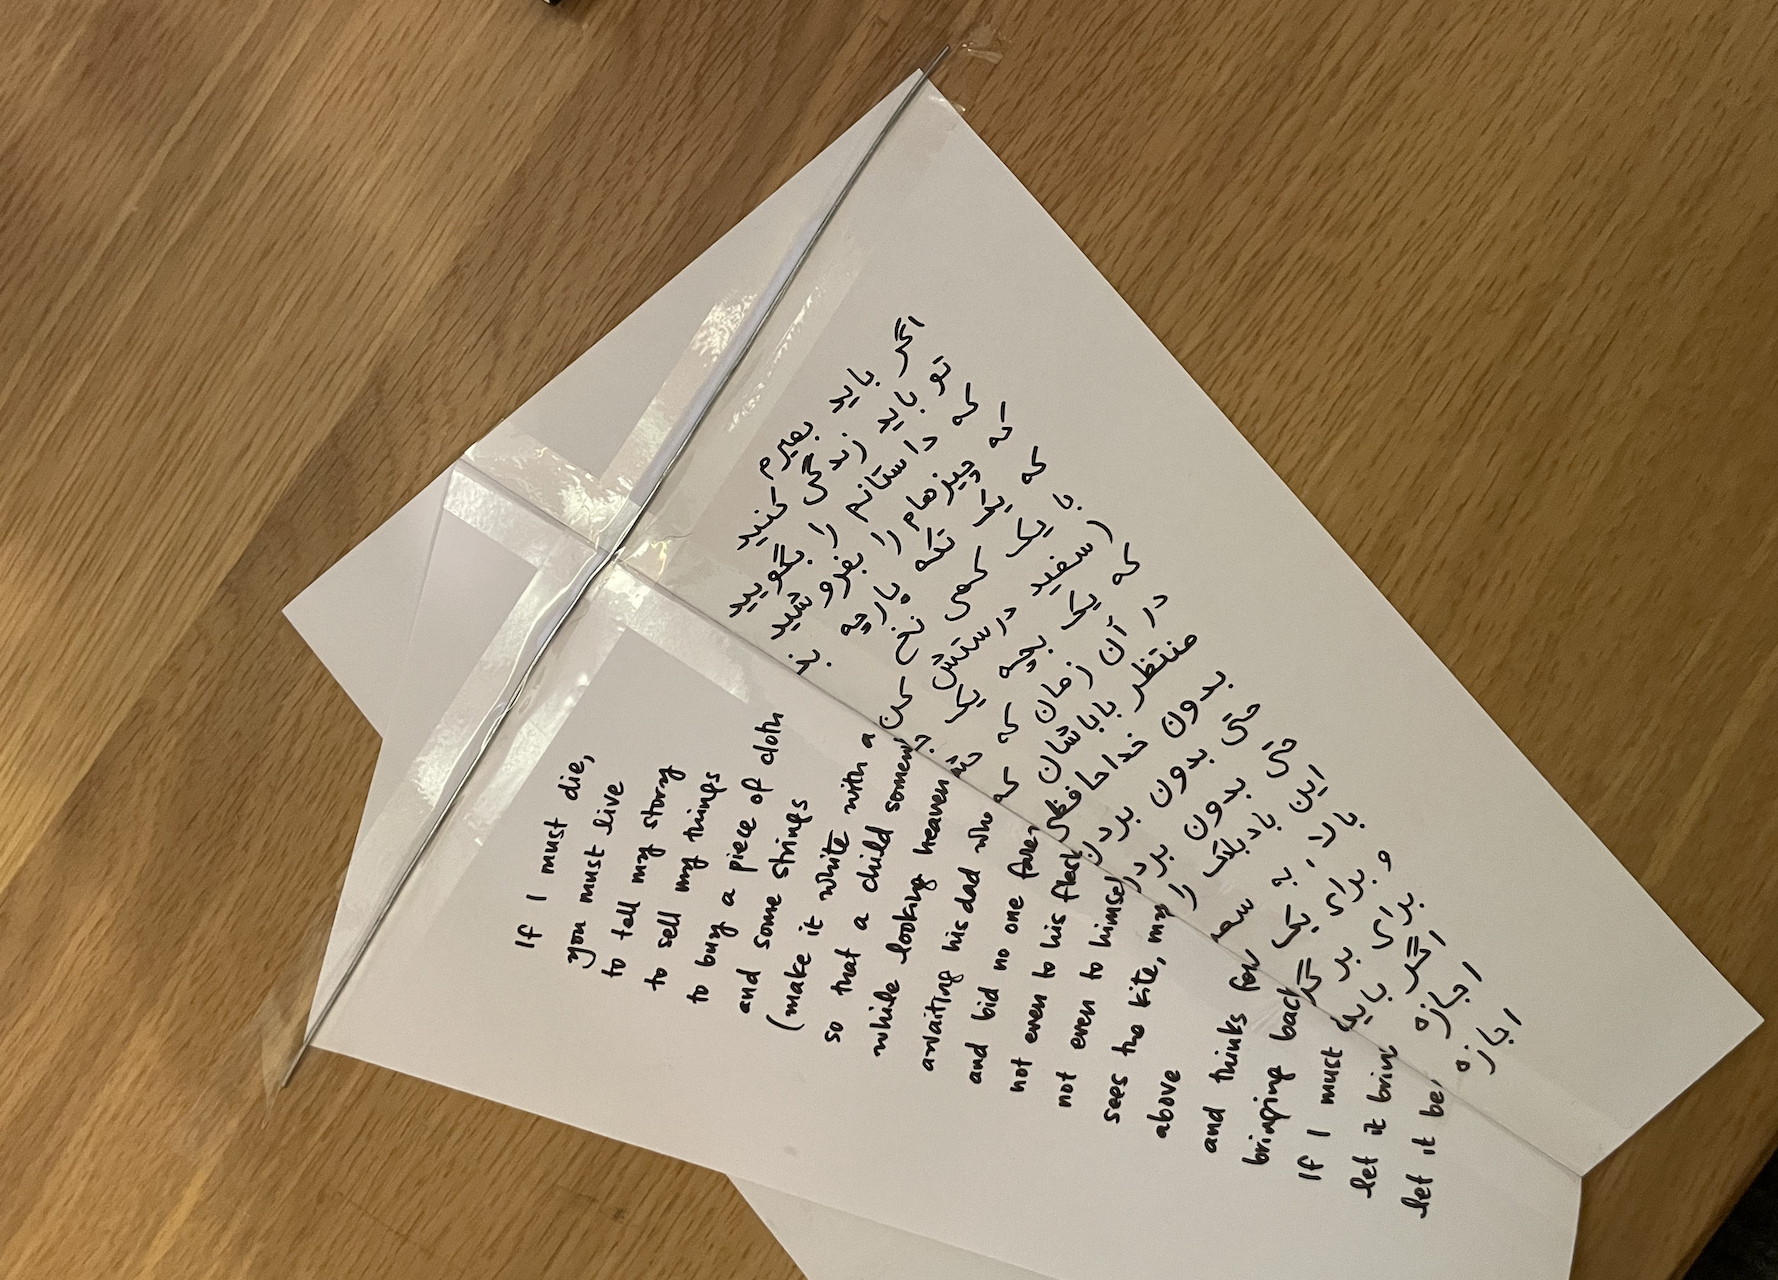 If I must die,
you must live
to tell my story
to sell my things
to buy a piece of cloth
and some strings
(make it white with a
so that a child somewh
while looking heaven
awaiting his dad who
and bid no one fare
not even to his flesh
not even to himself
sees the kite, my
above
and thinks for
bringing back
If I must
let it bring
let it be
اگر باید بمیرم
تو باید زندگی کنید
که داستانم را بگویید
که چیزهام را بفروشید
که یک تکه پارچه
با یک کمی نخ
(سفید درستش کن
که یک بچه یک
در آن زمان که
منتظر باباشان که
بدون خداحافظی
حتی بدون بدن
حتی بدون
این بادبادک را
بالا
و برای یک
برای بر گر
اگر باید
اجازه
اجازه